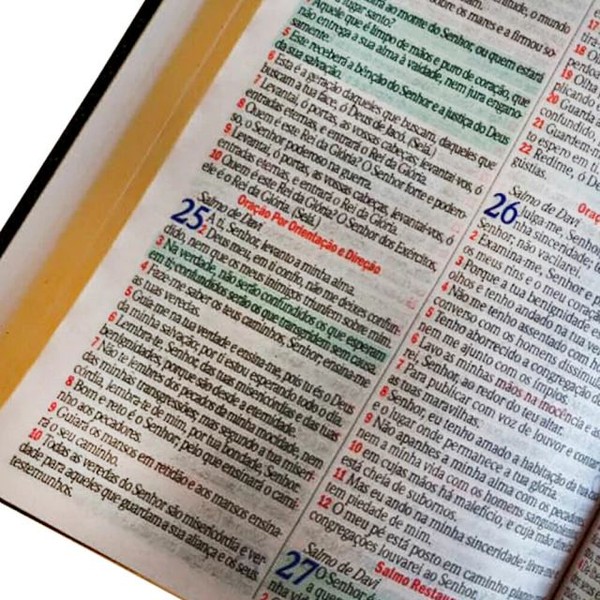 ao monte do Senhor, ou quem estará
lugar santo?
Aquele que é limpo de mãos e puro de coração, que
não entrega a sua alma à vaidade, nem jura engano-
samente.
5 Este receberá a bênção do Senhor e a justiça do Deus
da sua salvação.
6 Esta é a geração daqueles que buscam, daqueles que
buscam a tua face, ó Deus de Jacó. (Selá.)
7 Levantai, ó portas, as vossas cabeças; levantai-vos, ó
entradas eternas, e entrará o Rei da Glória.
8 Quem é este Rei da Glória? O Senhor forte e podero-
so, o Senhor poderoso na guerra.
9 Levantai, ó portas, as vossas cabeças, levantai-vos, ó
entradas eternas, e entrará o Rei da Glória.
10 Quem é este Rei da Glória? O Senhor dos Exércitos,
ele é o Rei da Glória. (Selá.)
Oração Por Orientação e Direção
Salmo de Davi
25 A ti, Senhor, levanto a minha alma.
2 Deus meu, em ti confio, não me deixes confun-
dido, nem que os meus inimigos triunfem sobre mim.
3 Na verdade, não serão confundidos os que esperam
em ti; confundidos serão os que transgridem sem causa.
4 Faze-me saber os teus caminhos, Senhor; ensina-me
as tuas veredas.
5 Guia-me na tua verdade e ensina-me, pois tu és o Deus
da minha salvação; por ti estou esperando todo o dia.
6 Lembra-te, Senhor, das tuas misericórdias e das tuas
benignidades, porque são desde a eternidade.
7 Não te lembres dos pecados da minha mocidade, nem
das minhas transgressões; mas segundo a tua miseri-
córdia, lembra-te de mim, por tua bondade, Senhor.
8 Bom e reto é o Senhor; pelo que ensinará o cami-
nho aos pecadores.
9 Guiará os mansos em retidão e aos mansos ensina-
rá o seu caminho.
10 Todas as veredas do Senhor são misericórdia e ver-
dade para aqueles que guardam a sua aliança e os seus
testemunhos.
sobre os mares e a firmou so-
17
18 Olha
19 Olha
20 Guarda a
confundido,
21 Guardem-m
to espero em ti.
22 Redime, ó De
gústias.
Salmo de Davi
26 Julga-me, Senhor
nha sinceridade; te
Senhor; não vacilarei.
2 Examina-me, Senhor e p
os meus rins e o meu coraçã
3 Porque a tua benignidade e
olhos e tenho andado na tua
4 Não me tenho assentado com
converso com os homens dissimula
5 Tenho aborrecido a congregação de
nem me ajunto com os ímpios.
6 Lavo as minhas mãos na inocência e as
rei, Senhor, ao redor do teu altar.
7 Para publicar com voz de louvor e contar
as tuas maravilhas.
8 Senhor, eu tenho amado a habitação da
e o lugar onde permanece a tua glória.
9 Não apanhes a minha alma com os pecadores
nem a minha vida com os homens sanguinários
10 em cujas mãos há malefício, e cuja mão direita
está cheia de subornos.
11 Mas eu ando na minha sinceridade; livra-me
tem piedade de mim.
12 O meu pé está posto em caminho plano
congregações louvarei ao Senhor.
Salmo Restau
Salmo de Davi
27 O Senhor é